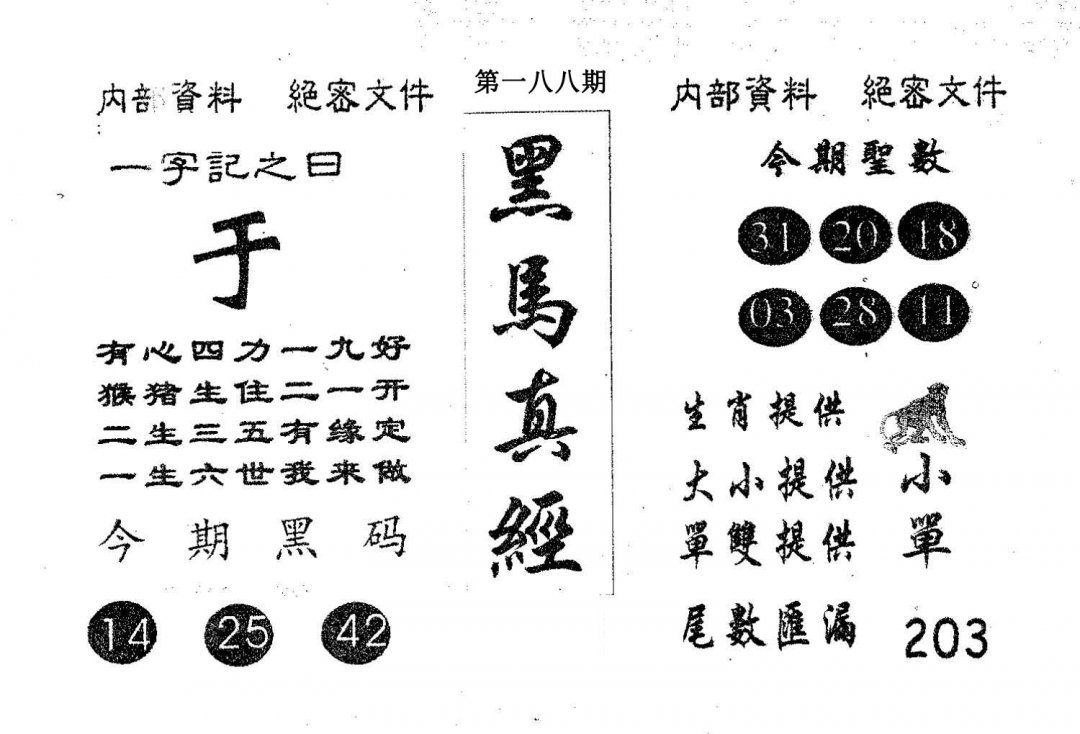 内部資料 絕密文件
第一八八期
内部資料 絕密文件
一字記之曰
于
有心四力一九好
猴猪生住二一开
二生三五有缘定
一生六世我来做
今期黑码
14 25 42
黑馬真經
今期聖數
31 20 18
03 28 11
生肖提供
大小提供 小
單雙提供 單
尾數匯漏 203